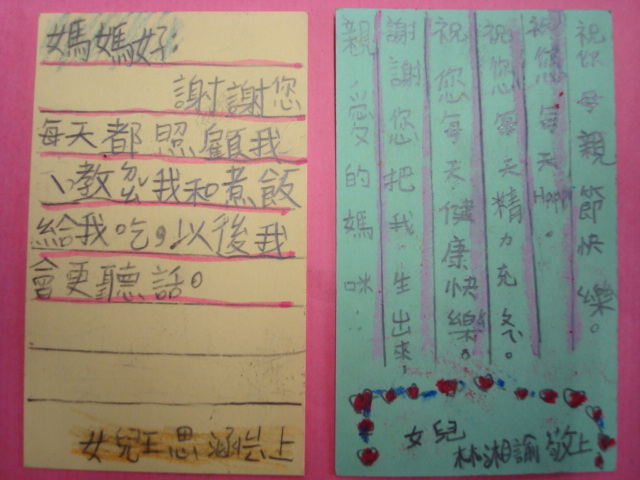 媽媽好.
謝謝您
每天都照顧我
、教我和煮飯
給我吃,以後我
會更聽話。
女兒王思涵上
親愛的媽咪:
謝謝您把我生出來,
祝您每天健康快樂。
祝您每天精力充。
祝您每天Happy。
祝您母親節快樂。
女兒
林湘諭敬上